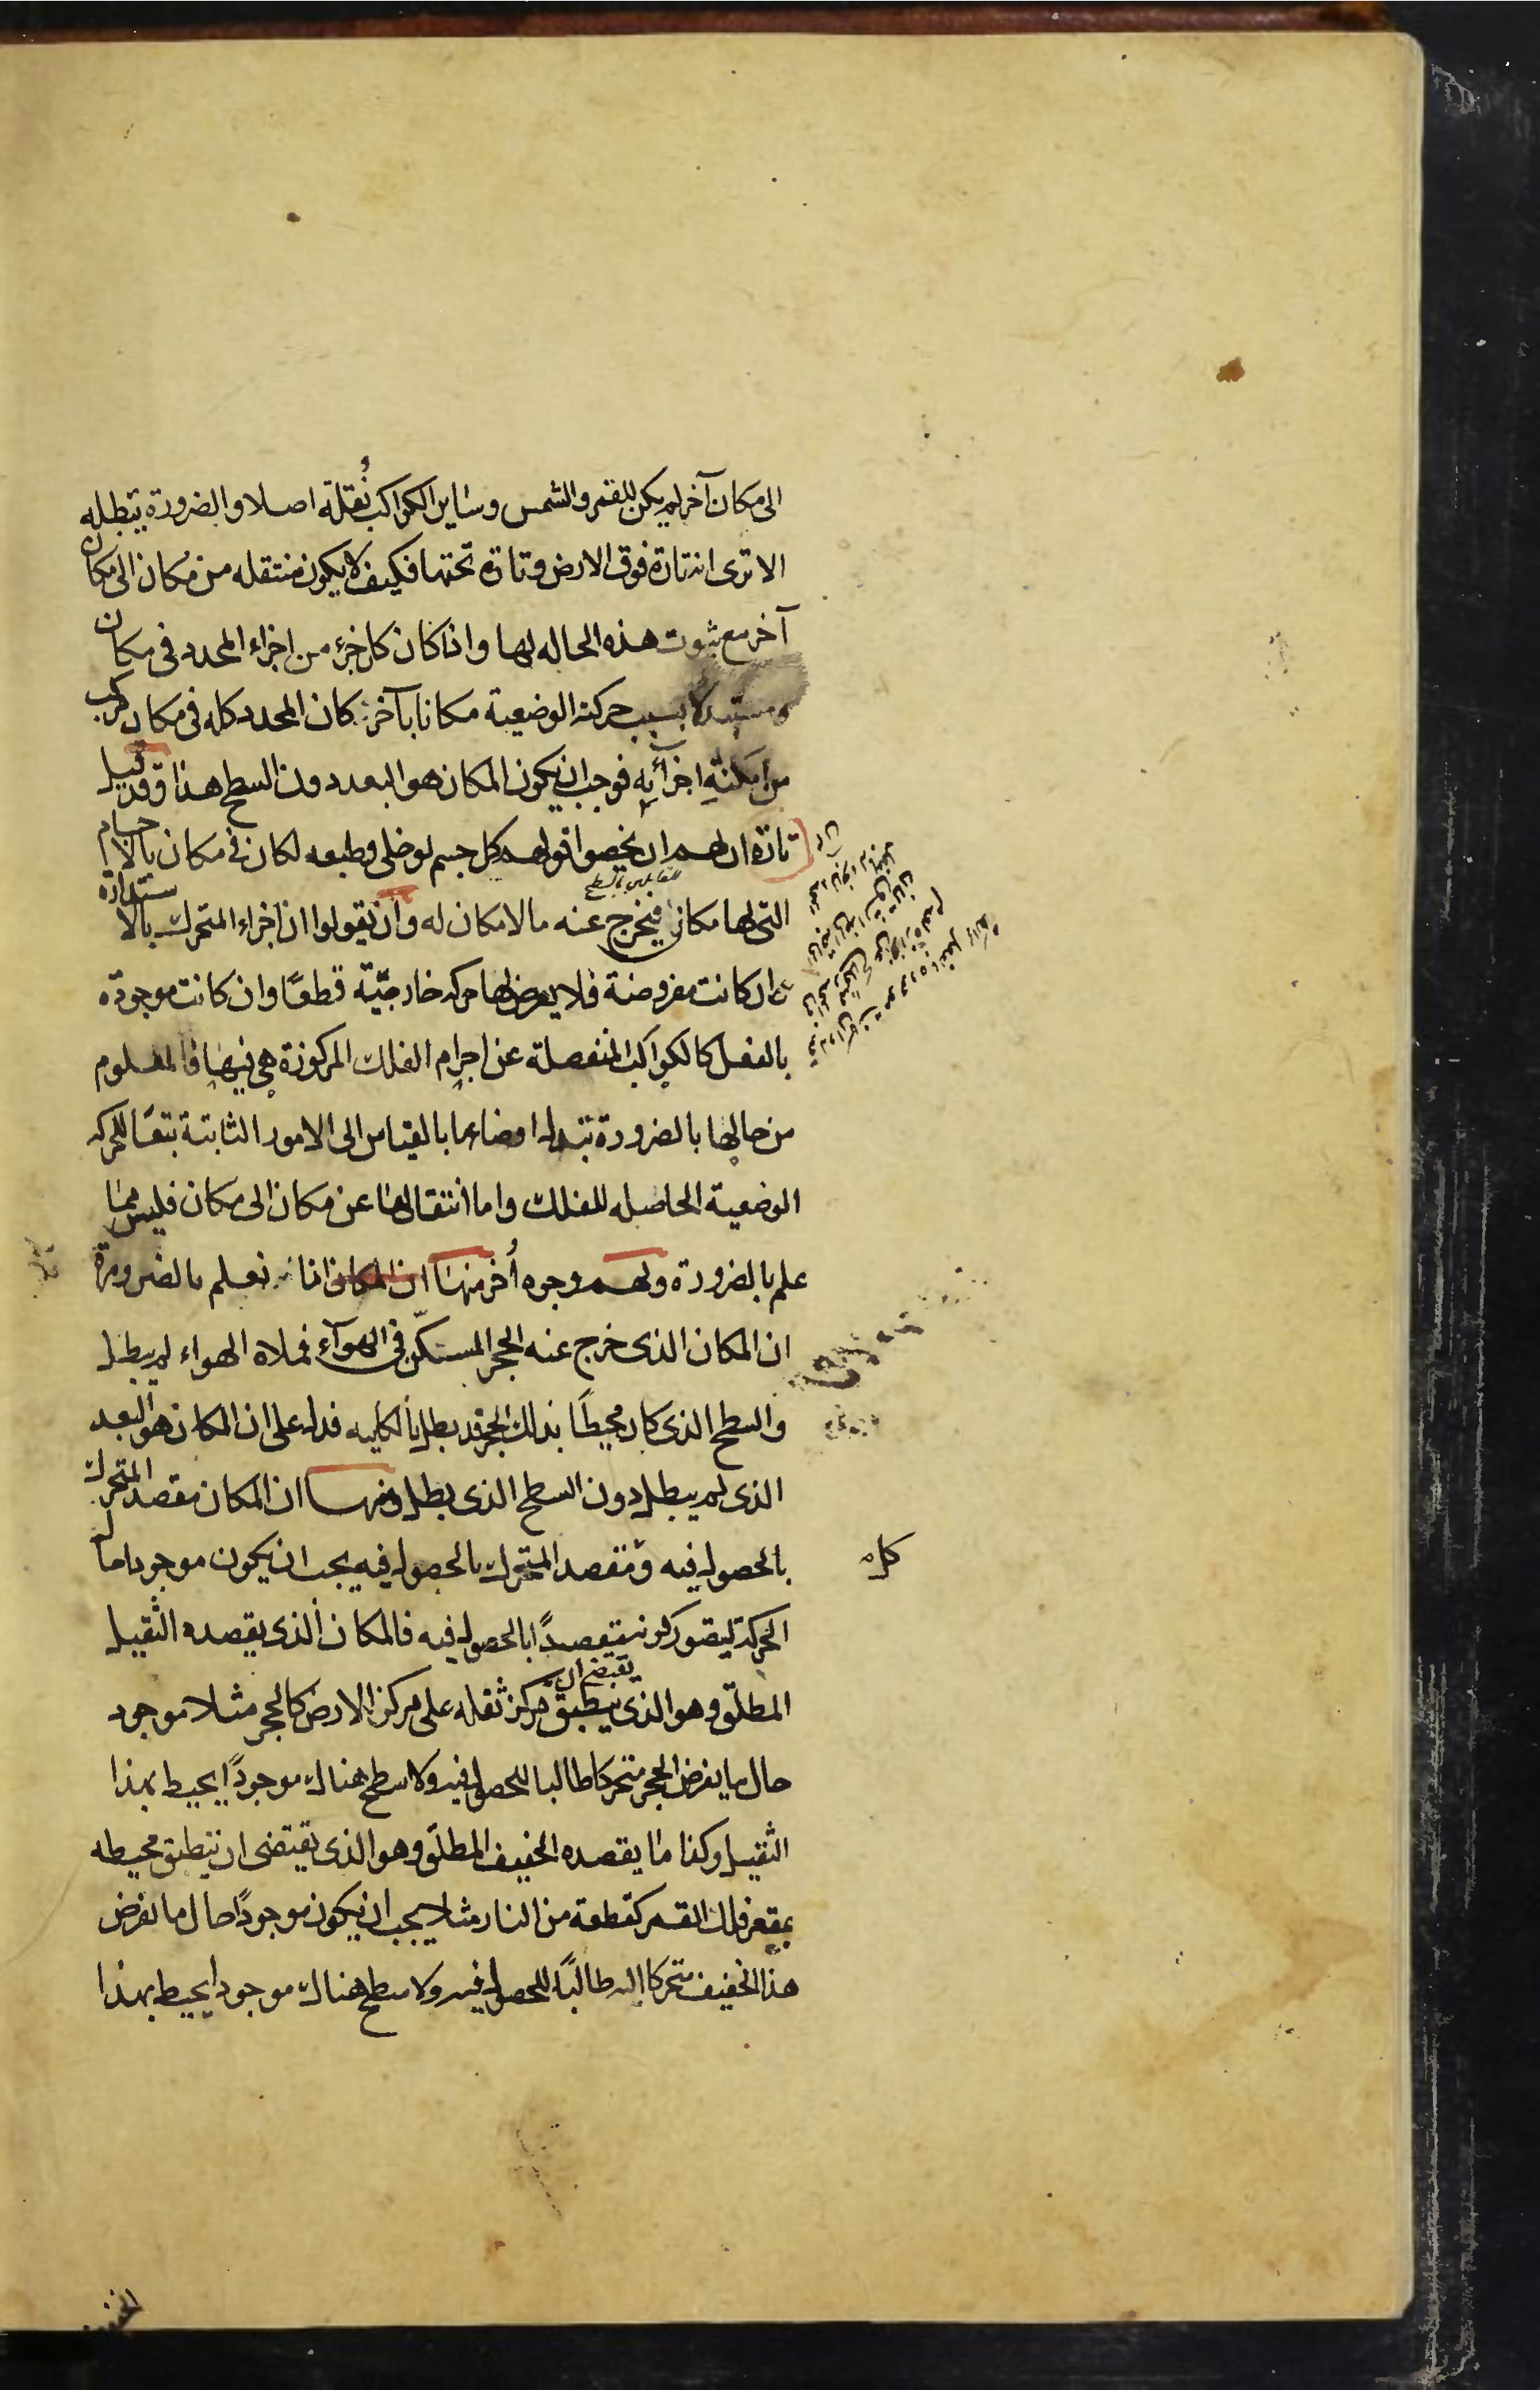 الى مكان آخر لم يكن للقمر والشمس وساير الكواكب نُقلة اصلا والضرورة تبطله
الا ترى انه تارة فوق الارض وتارة تحتها فكيف لا يكون منتقله من مكان الى مكان
آخر مع ثبوت هذه الحاله لها واذا كان كل جزء من اجزاء المحدد فى مكان
مستبدلا بسبب حركته الوضعية مكانا بآخر كان المحدد كله فى مكان مركب
من امكنةِ اجزآئِه فوجب ان يكون المكان هو البعد دون السطح هذا وقد قيل
تارة ان لهم ان يخصوا قولهم كل جسم لو خلى وطبعه لكان فى مكان بالاجسام
القابلين بالسطح
التى لها مكان فيخرج عنه ما لا مكان له وان يقولوا ان اجزاء المتحرك بالاستدارة
ان كانت مفروضة فلا يعرض لها حركه خارجيّة قطعًا وان كانت موجودة
بالفعل كالكواكب المنفصلة عن اجرام الفلك المركوزة هى فيها فالمعلوم
من حالها بالضرورة تبدل اوضاعها بالقياس الى الامور الثابتة تبعًا للحركه
الوضعية الحاصله للفلك واما انتقالها عن مكان الى مكان فليس مما
علم بالضرورة ولهم وجوه أُخر منها ان المكان انا نعلم بالضرورة
ان المكان الذى خرج عنه الحجر المسكّن فى الهوآء فملاه الهواء لم يبطل
والسطح الذى كان محيطًا بذلك الحجر قد بطل بالكليه فدل على ان المكان هو البعد
الذى لم يبطل دون السطح الذى بطل ومنها ان المكان مقصد المتحرك
بالحصول فيه ومقصد المتحرك بالحصول فيه يجب ان يكون موجودا حال
الحركة ليتصور كونه مقصدًا بالحصول فيه فالمكان الذى يقصده الثقيل
يقتضى ان
المطلق وهو الذى ينطبق مركز ثقله على مركز الارض كالحجر مثلا موجود
حال ما يفرض الحجر متحركا طالبا للحصول فيه ولا سطح هناك موجودًا يحيط بهذا
الثقيل وكذا ما يقصده الخفيف المطلق وهو الذى يقتضى ان ينطبق محيطه
بمقعر فلك القمر كقطعة من النار مثلا يجب ان يكون موجودًا حال ما نفرض
هذا الخفيف متحركا اليه طالبًا للحصول فيه ولا سطح هناك موجودا يحيط بهذا